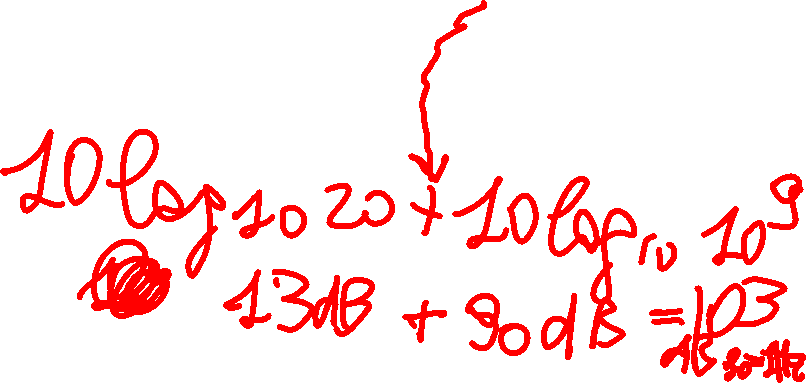 10 log10 20 + 10 log10 10^9
13dB + 90dB = 103
dB